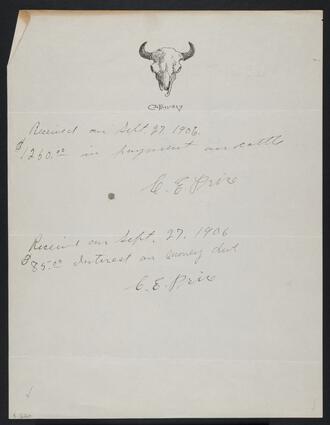 Received on Sept. 27. 1906.
$1260.00 in payment on cattle
C. E. Price
Received on Sept. 27, 1906
$85.00 Interest on money due
C. E. Price